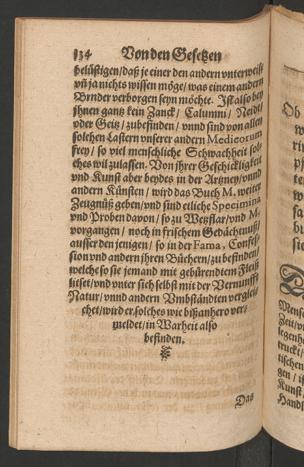 134 Von den Gesetzen
belüstigen/daß je einer den andern vnterweise
vñ ja nichts wissen möge/ was einem andern
Bruder verborgen seyn möchte. Ist also bey
jhnen gantz kein Zanck/ Calumni/ Neidt/
oder Geitz/ zubefinden/ vnnd sind von allen
solchen Lastern vnserer andern Medicorum
frey/ so viel menschliche Schwachheit sol-
ches wil zulassen. Von jhrer Geschickligkeit
vnd Kunst aber beydes in der Artzney/vnnd
andern Künsten/ wird das Buch M. weiter
Zeugnüß geben/vnd sind etliche Specimina
vnd Proben davon/ so zu Wetzlar/vnd M.
vorgangen/ noch in frischem Gedächtnuß/
ausser den jenigen/ so in der Fama, Confes-
sion vnd andern jhren Büchern/zu befinden/
welche so sie jemand mit gebürendem Fleiß
liset/vnd vnter sich selbst mit der Vernunfft
Natur/vnnd andern Vmbständten verglei-
chet/wird er solches wie bißanhero ver-
meldet/in Warheit also
befinden.
Das